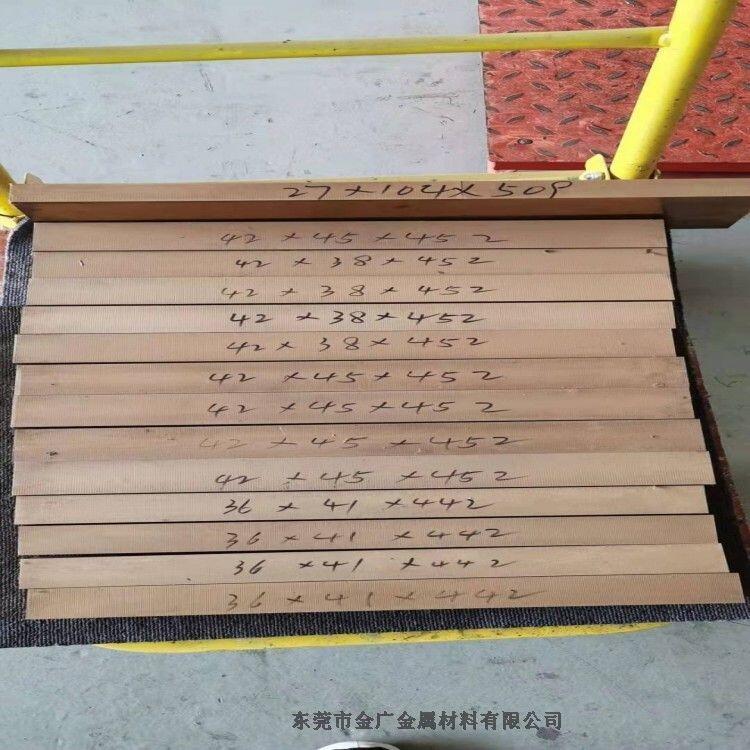 27×104×509
42×45×452
42×38×452
42×38×452
42×38×452
42×38×452
42×45×452
42×45×452
42×45×452
42×45×452
36×41×442
36×41×442
36×41×442
36×41×442
东莞市金广金属材料有限公司